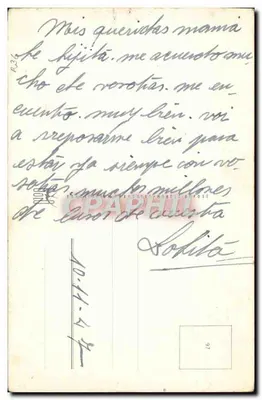 Mis queridas mama
he hijita. me acuerdo mu-
cho de vosotras. me en-
cuentro. muy bien. voi
a rreponerme bien para
estar ya siempre con vo-
sotras. muchos millones
de besos de vuestra
Lolita
10-11-47